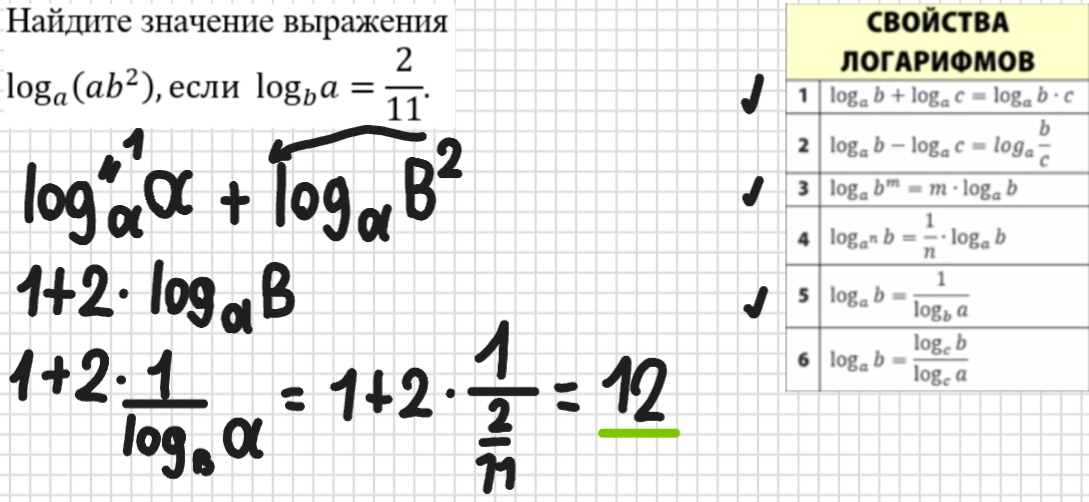 Найдите значение выражения
logₐ(ab²), если log_b a = 2/11.
logₐa = 1 + logₐB²
1+2·logₐB
1+2·1/(log_B a) = 1+2·1/(2/11) = 12
СВОЙСТВА
ЛОГАРИФМОВ
1 logₐ b + logₐ c = logₐ b · c
2 logₐ b − logₐ c = logₐ b/c
3 logₐ bᵐ = m · logₐ b
4 log_{aⁿ} b = 1/n · logₐ b
5 logₐ b = 1/(log_b a)
6 logₐ b = (log_c b)/(log_c a)